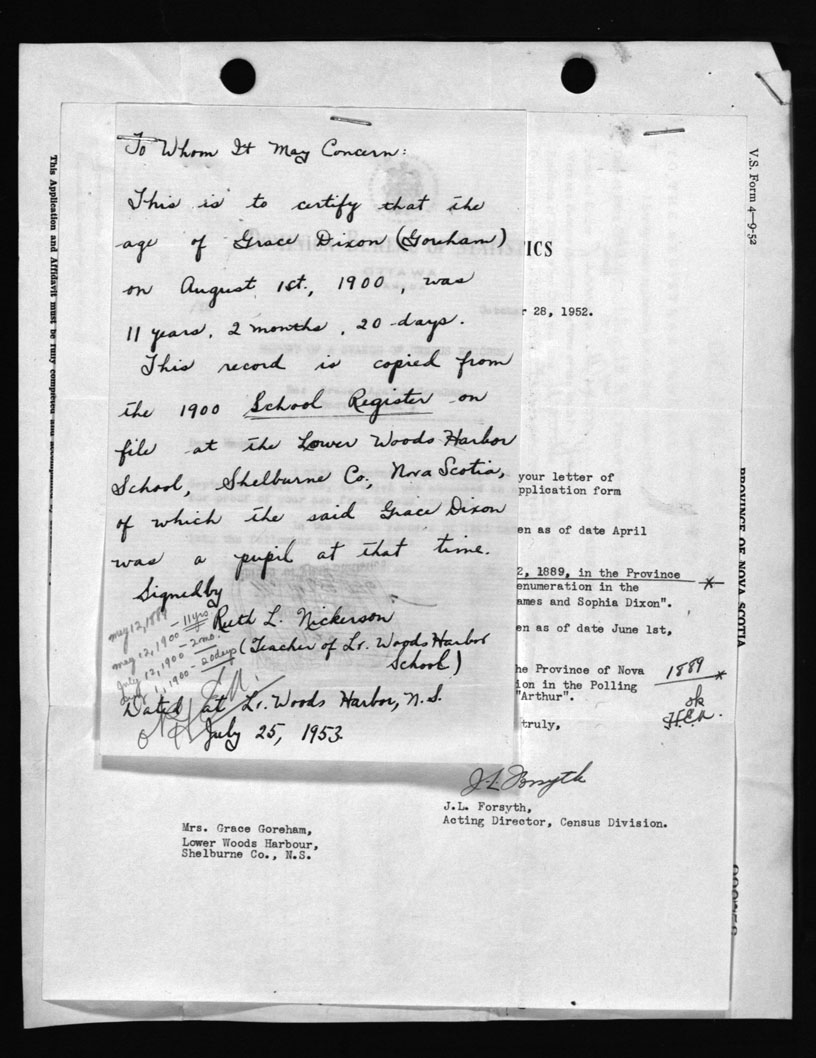 To Whom It May Concern:
This is to certify that the
age of Grace Dixon (Goreham)
on August 1st., 1900, was
11 years, 2 months, 20 days.
This record is copied from
the 1900 School Register on
file at the Lower Woods Harbor
School, Shelburne Co., Nova Scotia,
of which the said Grace Dixon
was a pupil at that time.
Signed by
Ruth L. Nickerson
(Teacher of Lr. Woods Harbor
School)
Dated at Lr. Woods Harbor, N.S.
July 25, 1953.
May 12, 1889
May 12, 1900 - 11 yrs
July 12, 1900 - 2 mo.
1, 1900 - 20 days
OTTAWA
ICS
28, 1952.
your letter of
pplication form
en as of date April
2, 1889, in the Province
enumeration in the
ames and Sophia Dixon".
en as of date June 1st,
he Province of Nova
ion in the Polling
"Arthur".
truly,
1889
ok
J.L. Forsyth
J.L. Forsyth,
Acting Director, Census Division.
Mrs. Grace Goreham,
Lower Woods Harbour,
Shelburne Co., N.S.
This Application and Affidavit must be fully completed and
V.S. Form 4—9-52
PROVINCE OF NOVA SCOTIA